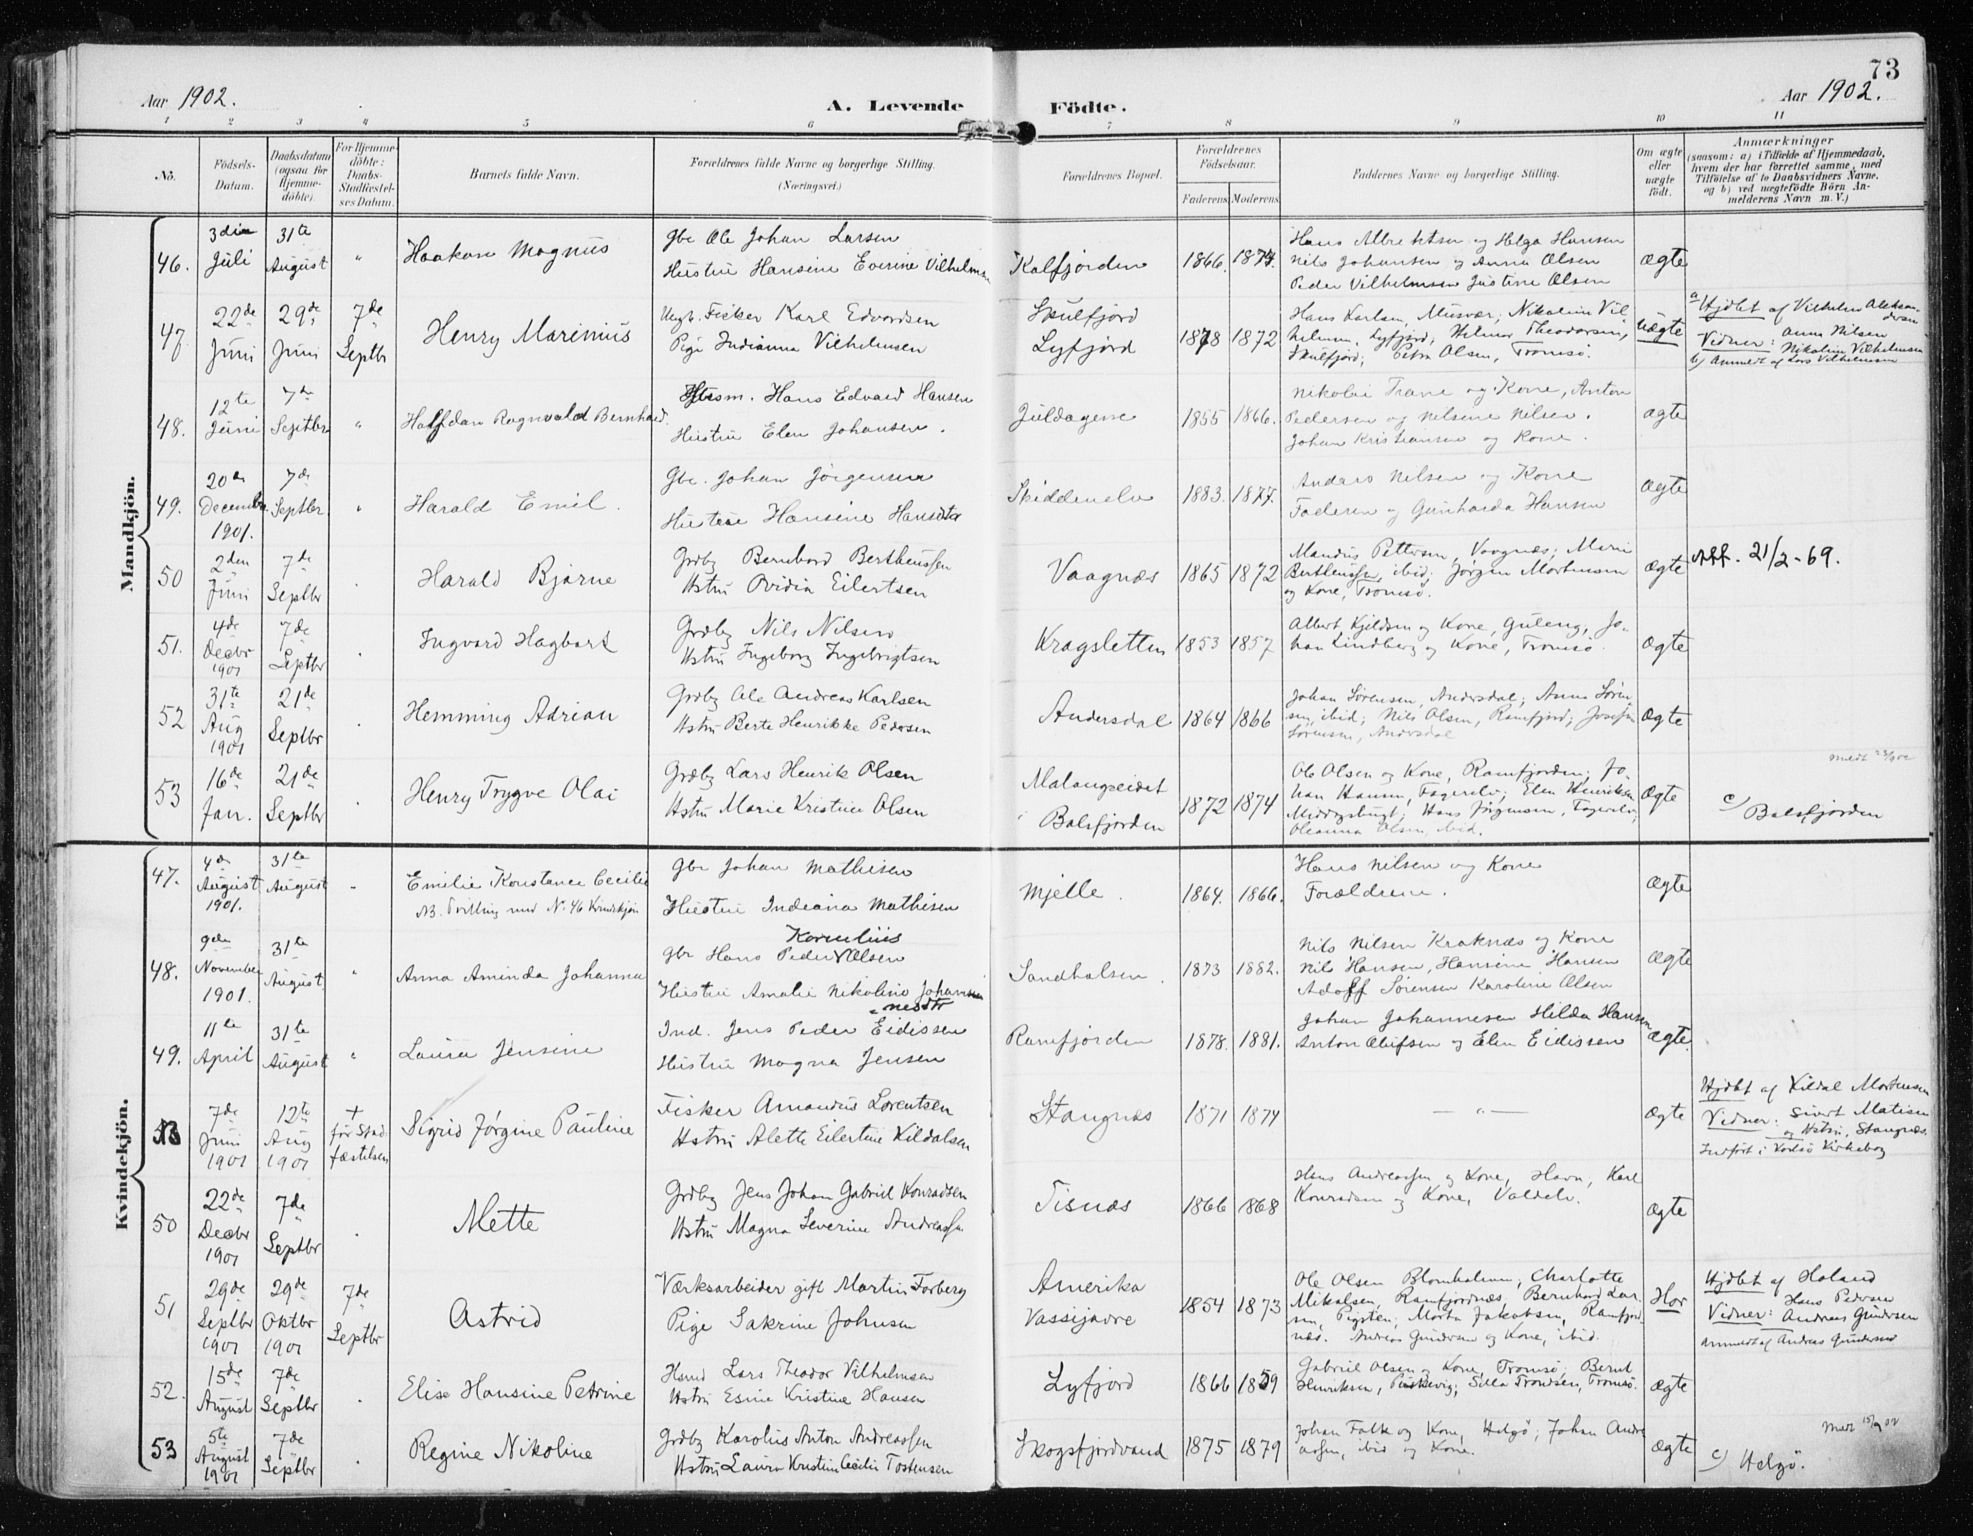 73
Aar 1902.
A. Levende Födte.
Aar 1902.
1 2 3 4 5 6 7 8 9 10 11
No.
Födsels-Datum.
Daabsdatum (ogsaa for Hjemme-döbte).
For Hjemme-döbte: Daabs-Stadfæstel-ses Datum.
Barnets fulde Navn.
Forældrenes fulde Navne og borgerlige Stilling.
(Næringsvei.)
Forældrenes Bopæl.
Forældrenes Födselsaar.
Faderens Moderens
Faddernes Navne og borgerlige Stilling.
Om ægte eller uægte födt.
Anmærkninger
(saasom: a) i Tilfælde af Hjemmedaab,
hvem der har forrettet samme, med
Tilföielse af to Daabsvidners Navne,
og b) ved uægtefödte Börn An-
melderens Navn m. V.)
Mandkjön.
46. 3die Juli 31te August " Haakon Magnus
Gbr Ole Johan Larsen
Hustru Hansine Everine Vilhelmsen
Kalfjorden 1866. 1874.
Hans Albrektsen og Helga Hansen
Nils Johansen og Anna Olsen
Peder Vilhelmsen Justine Olsen
ægte
47. 22de Juni 29de Juni 7de Septbr Henry Marinius
Ungk. Fisker Karl Edvardsen
Pige Indianna Vilhelmsen
Skulfjord
Lyfjord 1878 1872
Hans Karlsen, Musvær; Nikoline Vil-
helmsen, Lyfjord; Helmer Theodorsen,
Skulfjord; Petra Olsen, Tromsø.
Uægte
a) Hjdbt af Vilhelm Aleksandersen
Vidner: Anne Nilsen
Nikoline Vilhelmsen
b) Anmeldt af Lars Vilhelmsen
48. 12te Juni 7de Septbr " Halfdan Ragnvald Bernhard.
Husm. Hans Edvard Hansen
Hustru Elen Johansen.
Juldagene 1855 1866.
Nikolai Trane og Kone, Anton
Pedersen og Nilsine Nilsen.
Johan Kristiansen og Kone.
ægte
49. 20de December 1901. 7de Septbr " Harald Emil.
Gbr. Johan Jörgensen
Hustru Hansine Hansdtr
Skiddenelv 1883. 1877.
Anders Nilsen og Kone
Faderen og Gunharda Hansen
ægte
50 2den Juni 7de Septbr Harald Bjarne
Grdbr Bernhard Bertheussen
Hstru Ovidia Eilertsen
Vaagnæs 1865 1872
Mandus Pettersen, Vaagnæs; Marie
Bertheussen, ibid; Jørgen Mortensen
og Kone, Tromsø.
ægte
Aff. 21/2-69.
51. 4de Decbr 1901 7de Septbr Ingvard Hagbart
Grdbr Nils Nilsen
Hstru Ingeborg Ingebrigtsen
Kragsletten 1853 1857
Albert Kjeldsen og Kone, Guleng, Jo-
han Lindberg og Kone, Tromsø.
ægte
52 31te Aug 1901 21de Septbr Hemming Adrian
Grdbr Ole Andreas Karlsen
Hstru Berte Henrikke Pedersen
Andersdal 1864 1866
Johan Sørensen, Andersdal; Anna Søren-
sen, ibid; Nils Olsen, Ramfjord; Josefine
Sørensen, Andersdal
ægte
53 16de Jan. 21de Septbr Henry Trygve Olai
Grdbr Lars Henrik Olsen
Hstru Marie Kristine Olsen
Malangseidet
Balsfjorden 1872 1874
Ole Olsen og Kone, Ramfjorden; Jo-
han Hansen, Fagerelv; Elen Henriksen,
Middagsbugt; Hans Jørgensen, Fagerelv;
Oleanna Olsen, ibid.
ægte
c) Balsfjorden
Kvindekjön.
47. 4de August 1901. 31te August " Emilie Konstance Cecilie
NB. Tvilling med No. 46 Kvindekjön
Gbr Johan Mathisen
Hustru Indiana Mathisen
Mjelle. 1864. 1866.
Hans Nilsen og Kone
Forældrene.
ægte
48. 9de November 1901. 31te August. " Anna Aminda Johanna
Kornelius
Gbr Hans Peder Olsen
Hustru Amalie Nikoline Johannesen
nesdtr
Sandhalsen. 1873 1882.
Nils Nilsen Kraknæs og Kone
Nils Hansen, Hansine Hansen
Adolf Sörensen Karoline Olsen
ægte
49. 11te April 31te August " Laura Jensine
Ind. Jens Peder Eidissen
Hustru Magna Jensen
Ramfjorden 1878. 1881.
Johan Johannesen Hilda Hansen
Anton Olufsen og Elen Eidissen
ægte.
7de Juni 1901 12te Aug 1901 + før Stad-fæstelsen Sigrid Jørgine Pauline
Fisker Amandus Lorentsen
Hstru Alette Eilertine Kildalsen
Stangnæs 1871 1874
— " —
ægte
Hjdbt af Kildal Mortensen
Vidner: Sivert Matisen
og Hstru, Stangnæs.
Indført i Karlsö Kirkebog
50 22de Decbr 1901 7de Septbr Mette
Grdbr Jens Johan Gabriel Konradsen
Hstru Magna Severine Andreassen
Tisnæs 1866 1868
Hans Andreassen og Kone, Havn, Karl
Konradsen og Kone, Valdelv.
ægte
51 29de Septbr 1901 29de Oktbr 1901 7de Septbr Astrid
Værksarbeider gift Martin Forberg
Pige Sakrine Johnsen
Amerika
Vassijavre 1854 1873
Ole Olsen Blomholmen, Charlotte
Mikalsen, Ramfjordnæs, Bernhard Lar-
sen, Pigsten; Marta Jakobsen, Ramfjord-
næs. Andreas Gundersen og Kone, ibid.
Hor
Hjdbt af Haland
Vidner: Hans Pedersen
Andreas Gundersen
Anmeldt af Andreas Gundersen
52. 15de August 7de Septbr Elise Hansine Petrine
Husmd Lars Theodor Vilhelmsen
Hstru Esine Kristine Hansen
Lyfjord 1866 1859
Gabriel Olsen og Kone, Tromsø; Bernt
Henriksen, Tromsø.
ægte
53 5te August 1901 7de Septbr Regine Nikoline
Grdbr Karolius Anton Andreassen
Hstru Laura Kristine Cecilie Tostensen
Skogsfjordvand 1875 1879
Johan Falk og Kone, Helgø; Johan Andre-
assen, ibid og Kone.
ægte
c) Helgø.